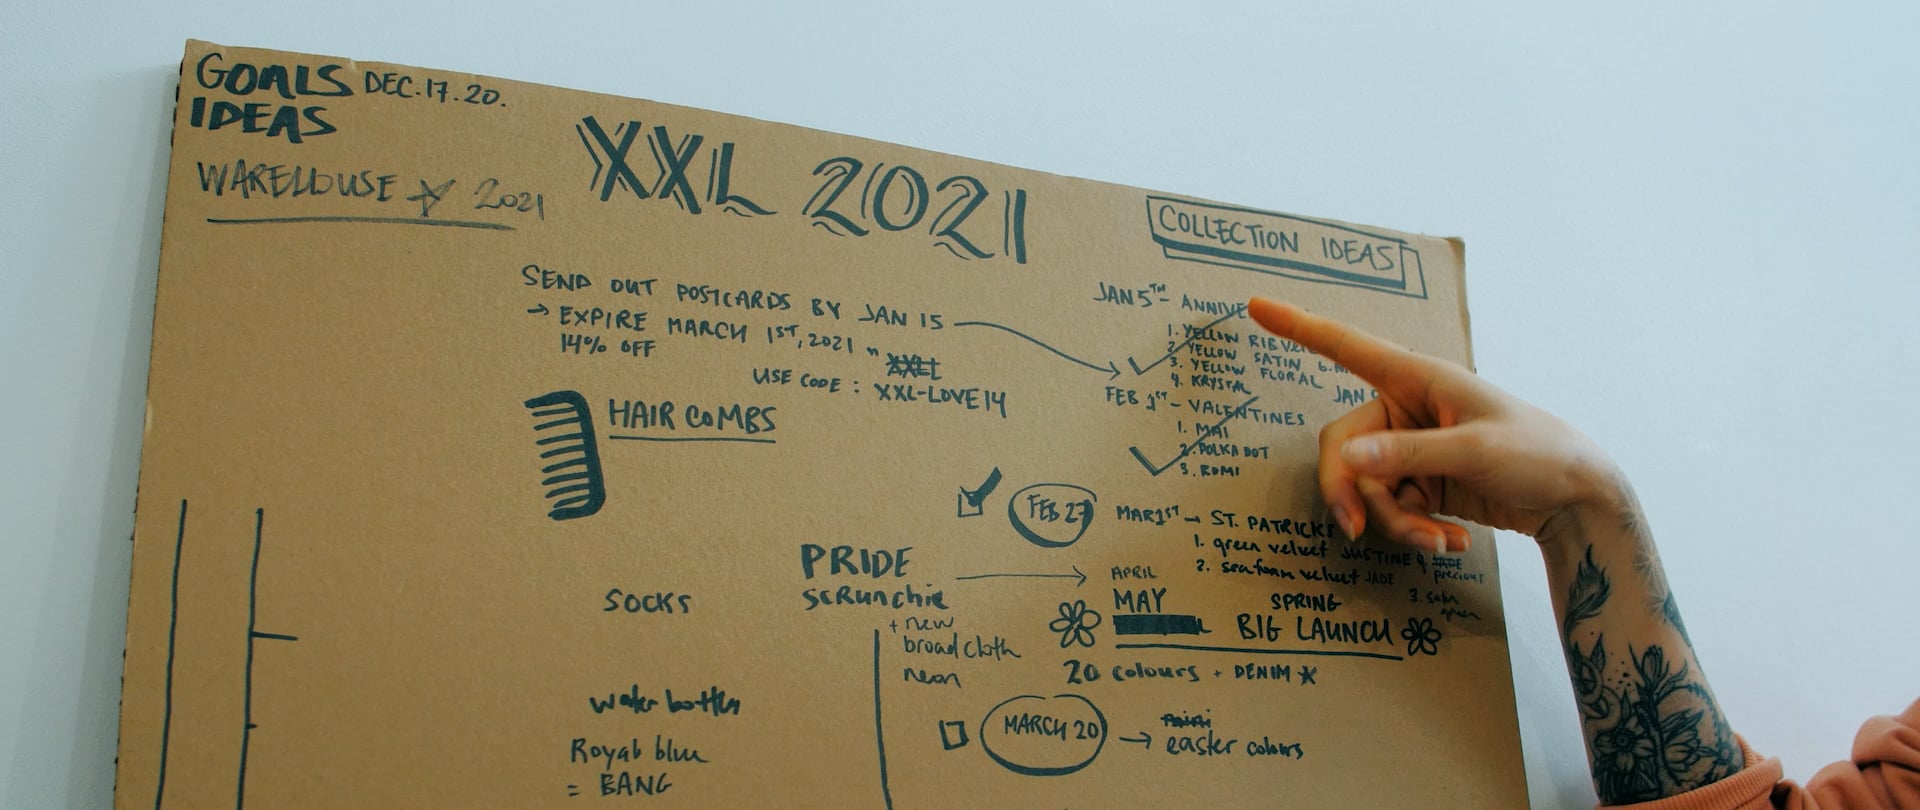 GOALS DEC.17.20.
IDEAS
WAREHOUSE 2021
XXL 2021
SEND OUT POSTCARDS BY JAN 15
→ EXPIRE MARCH 1ST, 2021
14% OFF
USE CODE : XXL-LOVE14
HAIR COMBS
SOCKS
water bottles
Royal blue
= BANG
PRIDE
scrunchie
+ new
broadcloth
neon
COLLECTION IDEAS
JAN 5TH -
1. YELLOW RIB
2. YELLOW SATIN 6.
3. YELLOW FLORAL
4. KRYSTAL JAN
FEB 1ST - VALENTINES
1. MAI
2. POLKA DOT
3. ROMI
FEB 27 MAR 1ST → ST. PATRICKS
1. green velvet JUSTINE
2. seafoam velvet JADE precious
3. green
APRIL
MAY SPRING
BIG LAUNCH
20 colours + DENIM
MARCH 20 → easter colours